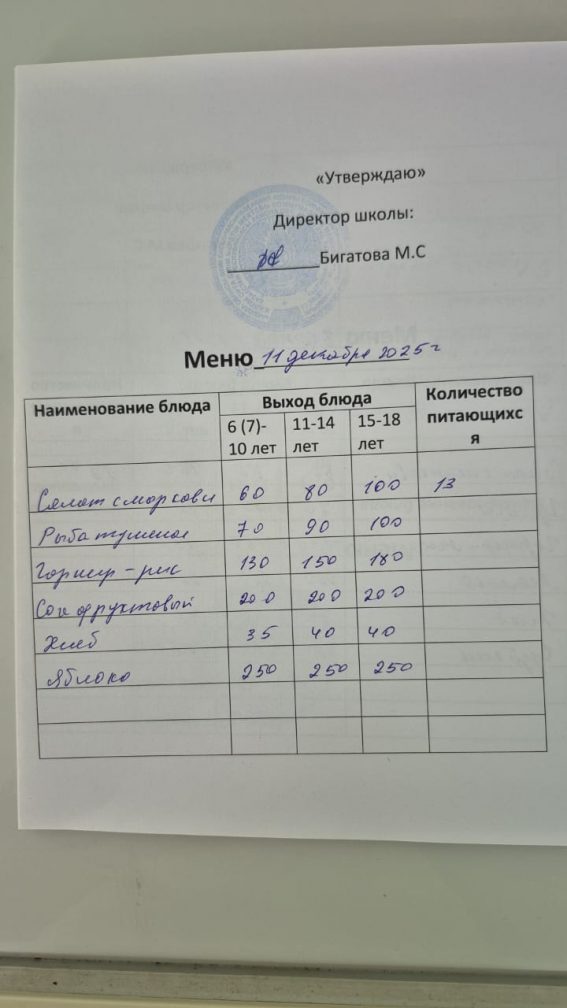 «Утверждаю»
Директор школы:
Бигатова М.С
Меню 11 декабря 2025 г
Наименование блюда Выход блюда Количество питающихс я
6 (7)- 10 лет 11-14 лет 15-18 лет
Салат с моркови 60 80 100 13
Рыба тушеная 70 90 100
Гарнир - рис 130 150 180
Сок фруктовый 200 200 200
Хлеб 35 40 40
Яблоко 250 250 250